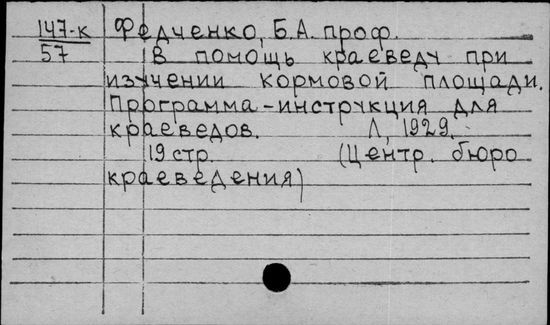 147-к Федченко, Б.А. проф.
57 В помощь краеведу при
изучении кормовой площади.
Программа-инструкция для
краеведов. Л, 1929.
19 стр. (Центр. бюро
краеведения)